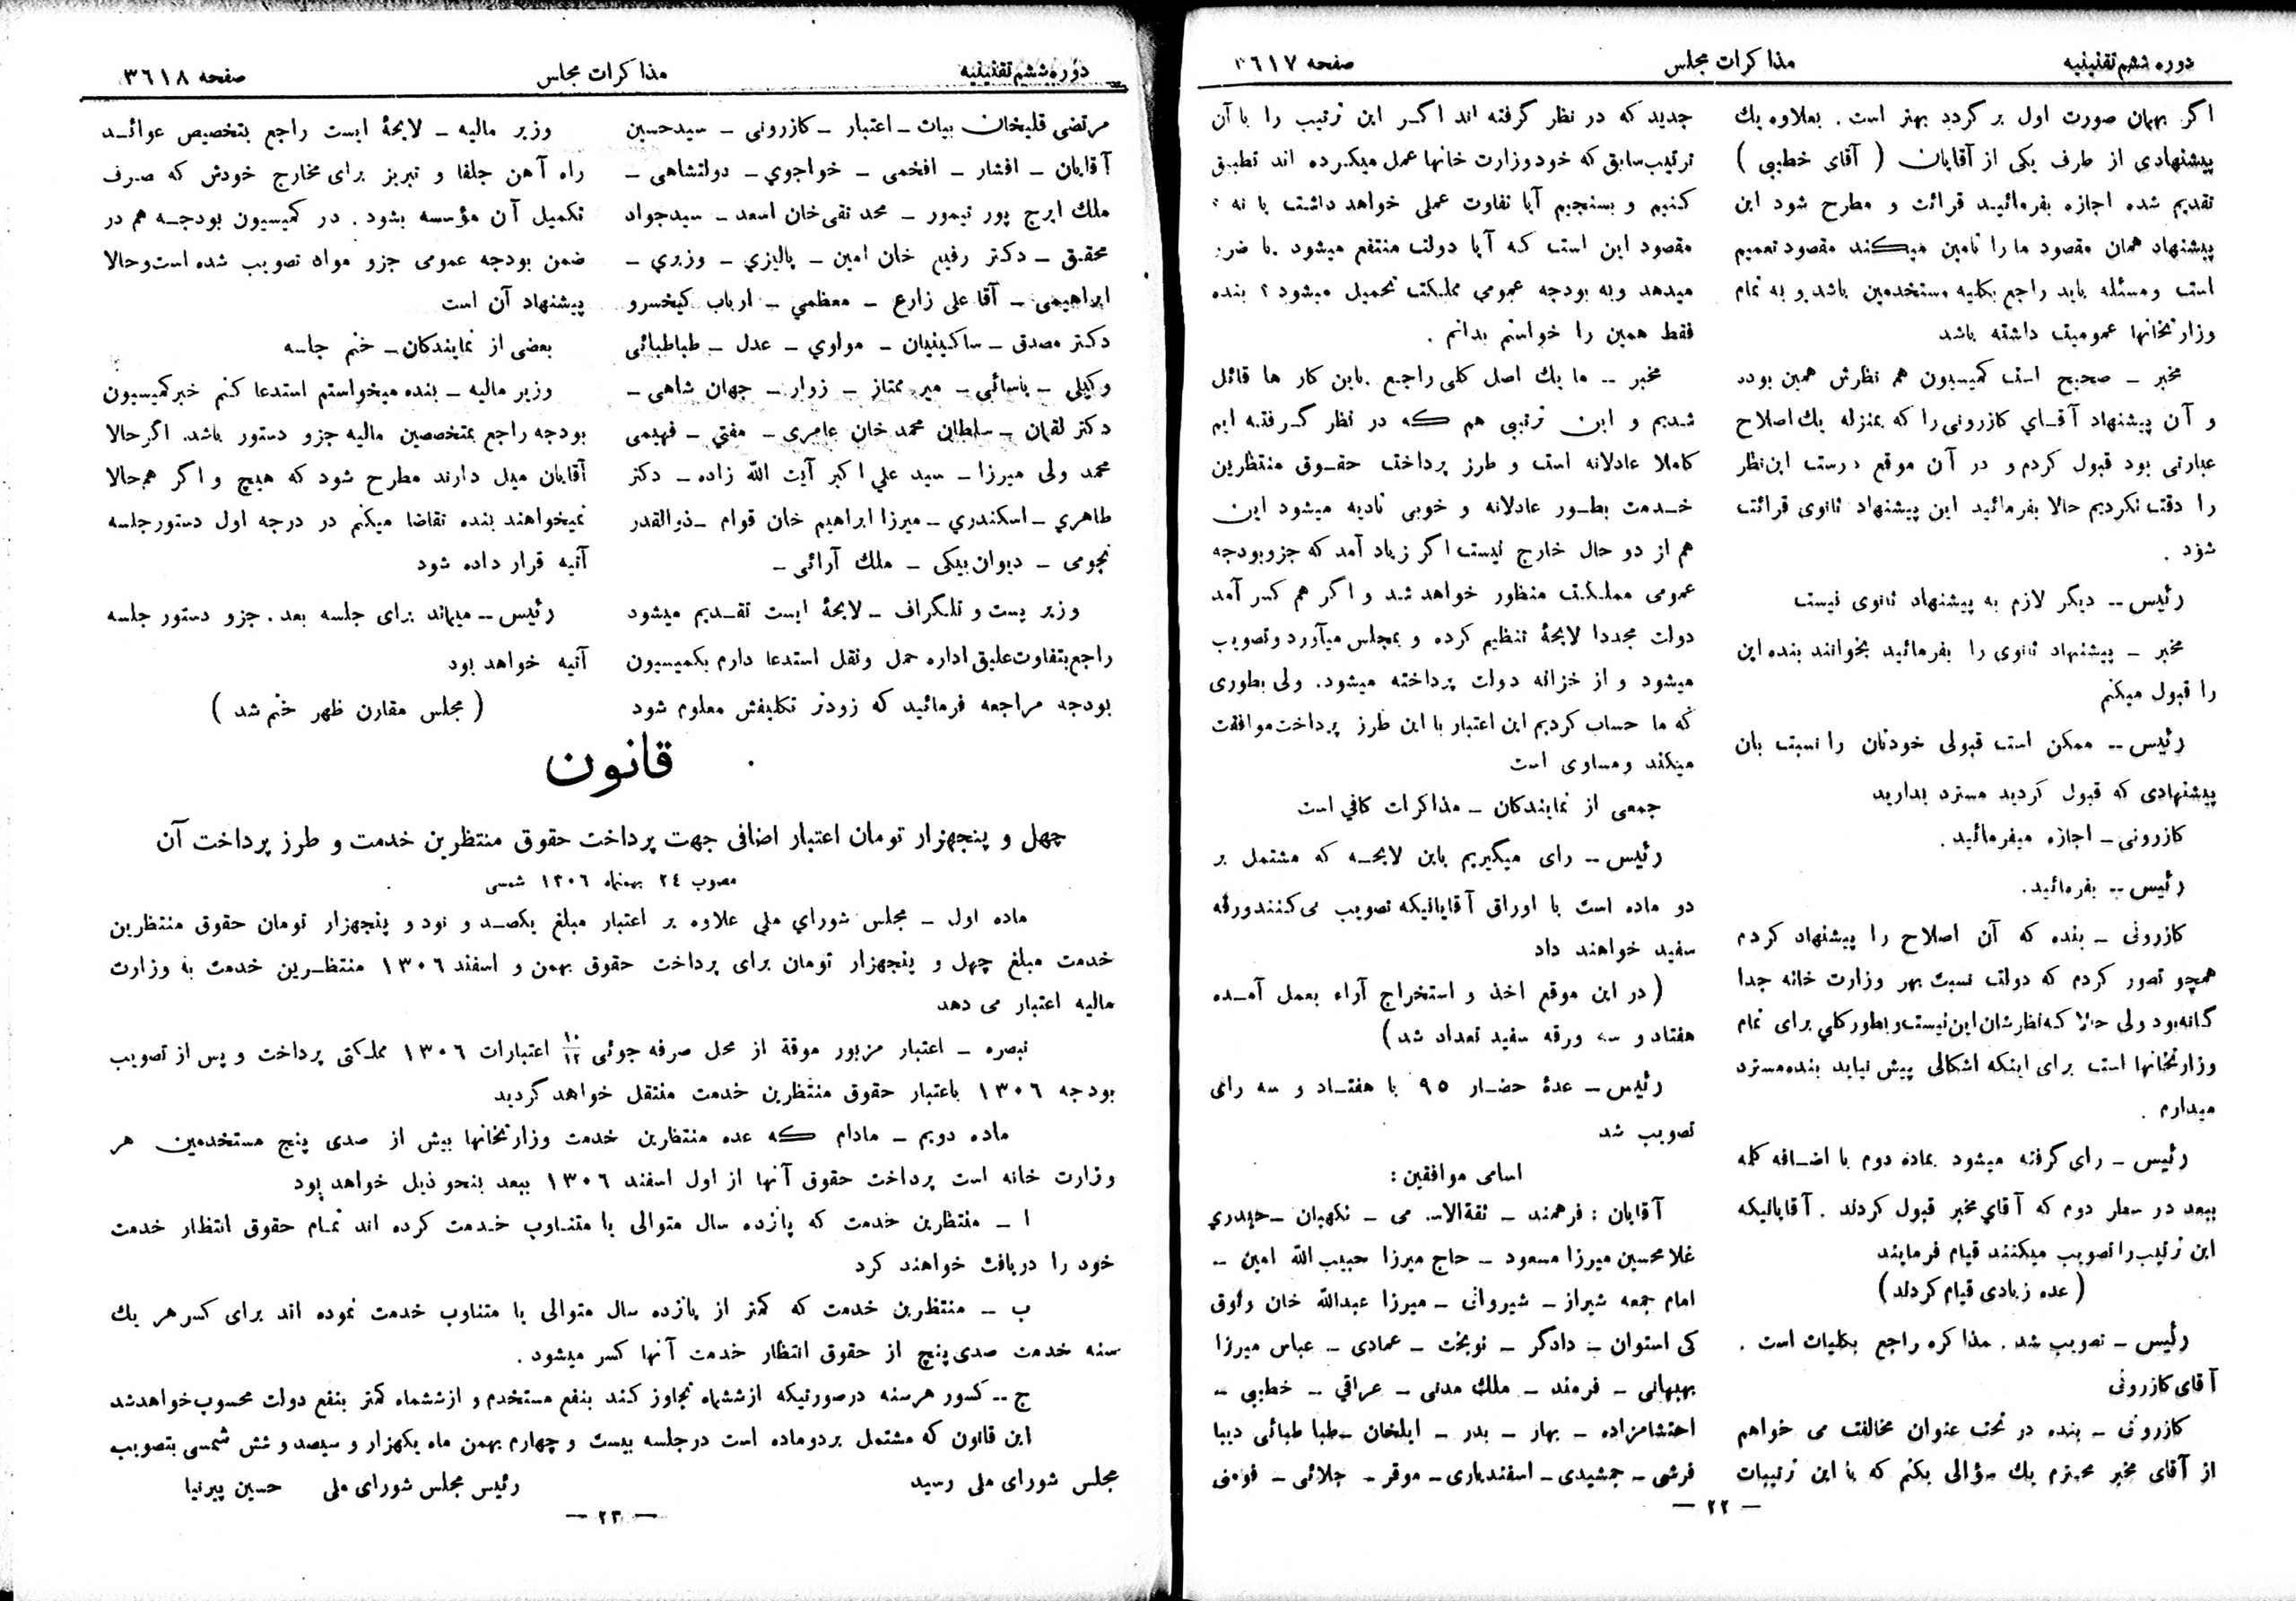 دوره ششم تقنینیه
مذاکرات مجلس
صفحه ۳٦۱۷
اگر بهمان صورت اول بر گردد بهتر است . بعلاوه یك
پیشنهادی از طرف یکی از آقایان ( آقای خطیبی )
تقدیم شده اجازه بفرمائید قرائت و مطرح شود این
پیشنهاد همان مقصود ما را تامین میکند مقصود تعمیم
است و مسئله باید راجع بکلیه مستخدمین باشد و به تمام
وزارتخانها عمومیت داشته باشد
مخبر ـ صحیح است کمیسیون هم نظرش همین بوده
و آن پیشنهاد آقای کازرونی را که بمنزله یك اصلاح
عبارتی بود قبول کردم و در آن موقع درست این نظر
را دقت نکردیم حالا بفرمائید این پیشنهاد ثانوی قرائت
شود .
رئیس ـ دیگر لازم به پیشنهاد ثانوی نیست
مخبر ـ پیشنهاد ثانوی را بفرمائید بخوانند بنده این
را قبول میکنم
رئیس ـ ممکن است قبولی خودتان را نسبت بان
پیشنهادی که قبول کردید مسترد بدارید
کازرونی ـ اجازه میفرمائید .
رئیس ـ بفرمائید.
کازرونی ـ بنده که آن اصلاح را پیشنهاد کردم
همچو تصور کردم که دولت نسبت بهر وزارت خانه جدا
گانه بود ولی حالا که نظرشان این نیست و بطور کلي برای تمام
وزارتخانها است برای اینکه اشکالی پیش نیاید بنده مسترد
میدارم .
رئیس ـ رای گرفته میشود بماده دوم با اضافه کلمه
ببعد در سطر دوم که آقاي مخبر قبول کردند . آقایانیکه
این ترتیب را تصویب میکنند قیام فرمایند
( عده زیادی قیام کردند )
رئیس ـ تصویب شد . مذاکره راجع بکلیات است .
آقای کازرونی
کازرونی ـ بنده در تحت عنوان مخالفت می خواهم
از آقای مخبر محترم یك سؤالی بکنم که با این ترتیبات
جدید که در نظر گرفته اند اگر این ترتیب را با آن
ترتیب سابق که خود وزارت خانها عمل میکرده اند تطبیق
کنیم و بسنجیم آیا تفاوت عملی خواهد داشت یا نه ؟
مقصود این است که آیا دولت منتفع میشود یا ضرر
میدهد و به بودجه عمومي مملکت تحمیل میشود ؟ بنده
فقط همین را خواستم بدانم .
مخبر ـ ما یك اصل کلی راجع باین کار ها قائل
شدیم و این ترتیبی هم که در نظر گرفته ایم
کاملا عادلانه است و طرز پرداخت حقوق منتظرین
خدمت بطور عادلانه و خوبی تادیه میشود این
هم از دو حال خارج نیست اگر زیاد آمد که جزو بودجه
عمومی مملکت منظور خواهد شد و اگر هم کسر آمد
دولت مجددا لایحهٔ تنظیم کرده و بمجلس میآورد و تصویب
میشود و از خزانه دولت پرداخته میشود . ولی بطوری
که ما حساب کردیم این اعتبار با این طرز پرداخت موافقت
میکند و مساوی است
جمعی از نمایندکان ـ مذاکرات کافي است
رئیس ـ رای میگیریم باین لایحه که مشتمل بر
دو ماده است با اوراق آقایانیکه تصویب می کنند ورقه
سفید خواهند داد
( در این موقع اخذ و استخراج آراء بعمل آمده
هفتاد و سه ورقه سفید تعداد شد )
رئیس ـ عدهٔ حضار ۹۵ با هفتاد و سه رای
تصویب شد
اسامی موافقین :
آقایان : فرهمند ـ ثقةالاسلامی ـ نگهبان ـ حیدري
غلامحسین میرزا مسعود ـ حاج میرزا حبیب الله امین ـ
امام جمعه شیراز ـ شیروانی ـ میرزا عبدالله خان وثوق
کی استوان ـ دادگر ـ نوبخت ـ عمادی ـ عباس میرزا
بهبهانی ـ فرمند ـ ملك مدنی ـ عراقي ـ خطیبی ـ
احتشامزاده ـ بهار ـ بدر ـ ایلخان ـ طبا طبائی دیبا
فرشی ـ جمشیدی ـ اسفندیاری ـ موقر ـ جلائی ـ فومنی
— ۲۲ —
دوره ششم تقنینیه
مذاکرات مجلس
صفحه ۳٦۱۸
مرتضی قلیخان بیات ـ اعتبار ـ کازرونی ـ سیدحسین
آقایان ـ افشار ـ افخمی ـ خواجوي ـ دولتشاهی ـ
ملك ایرج پور تیمور ـ محمد تقی خان اسعد ـ سیدجواد
محقق ـ دکتر رفیع خان امین ـ پالیزي ـ وزیري ـ
ابراهیمی ـ آقا علی زارع ـ معظمي ـ ارباب کیخسرو
دکتر مصدق ـ ساکینیان ـ مولوي ـ عدل ـ طباطبائی
وکیلی ـ یاسائی ـ میر ممتاز ـ زوار ـ جهان شاهی ـ
دکتر لقمان ـ سلطان محمد خان عامری ـ مفتي ـ فهیمی
محمد ولی میرزا ـ سید علي اکبر آیت الله زاده ـ دکتر
طاهري ـ اسکندري ـ میرزا ابراهیم خان قوام ـ ذوالقدر
نجومی ـ دیوان بیکی ـ ملك آرائی ـ
وزیر پست و تلگراف ـ لایحهٔ ایست تقدیم میشود
راجع بتفاوت علیق اداره حمل و نقل استدعا دارم بکمیسیون
بودجه مراجعه فرمائید که زودتر تکلیفش معلوم شود
وزیر مالیه ـ لایحهٔ ایست راجع بتخصیص عوائد
راه آهن جلفا و تبریز برای مخارج خودش که صرف
تکمیل آن مؤسسه بشود . در کمیسیون بودجه هم در
ضمن بودجه عمومی جزو مواد تصویب شده است و حالا
پیشنهاد آن است
بعضی از نمایندکان ـ ختم جلسه
وزیر مالیه ـ بنده میخواستم استدعا کنم خبر کمیسیون
بودجه راجع بمتخصصین مالیه جزو دستور باشد. اگر حالا
آقایان میل دارند مطرح شود که هیچ و اگر هم حالا
نمیخواهند بنده تقاضا میکنم در درجه اول دستور جلسه
آتیه قرار داده شود
رئیس ـ میماند برای جلسه بعد . جزو دستور جلسه
آتیه خواهد بود
( مجلس مقارن ظهر ختم شد )
قانون
چهل و پنجهزار تومان اعتبار اضافی جهت پرداخت حقوق منتظرین خدمت و طرز پرداخت آن
مصوب ۲٤ بهمنماه ۱۳۰٦ شمسی
ماده اول ـ مجلس شوراي ملي علاوه بر اعتبار مبلغ یکصد و نود و پنجهزار تومان حقوق منتظرین
خدمت مبلغ چهل و پنجهزار تومان برای پرداخت حقوق بهمن و اسفند ۱۳۰٦ منتظرین خدمت به وزارت
مالیه اعتبار می دهد
تبصره ـ اعتبار مزبور موقة از محل صرفه جوئی ۱۰/۱۲ اعتبارات ۱۳۰٦ مملکتی پرداخت و پس از تصویب
بودجه ۱۳۰٦ باعتبار حقوق منتظرین خدمت منتقل خواهد گردید
ماده دویم ـ مادام که عده منتظرین خدمت وزارتخانها بیش از صدی پنج مستخدمین هر
وزارت خانه است پرداخت حقوق آنها از اول اسفند ۱۳۰٦ ببعد بنحو ذیل خواهد بود
ا ـ منتظرین خدمت که پازده سال متوالی یا متناوب خدمت کرده اند تمام حقوق انتظار خدمت
خود را دریافت خواهند کرد
ب ـ منتظرین خدمت که کمتر از پازده سال متوالی یا متناوب خدمت نموده اند برای کسر هر یك
سنه خدمت صدی پنج از حقوق انتظار خدمت آنها کسر میشود .
ج ـ کسور هر سنه درصورتیکه از ششماه تجاوز کند بنفع مستخدم و از ششماه کمتر بنفع دولت محسوب خواهد شد
این قانون که مشتمل بر دو ماده است در جلسه بیست و چهارم بهمن ماه یکهزار و سیصد و شش شمسی بتصویب
مجلس شورای ملی رسید
رئیس مجلس شورای ملی حسین پیرنیا
— ۲۳ —